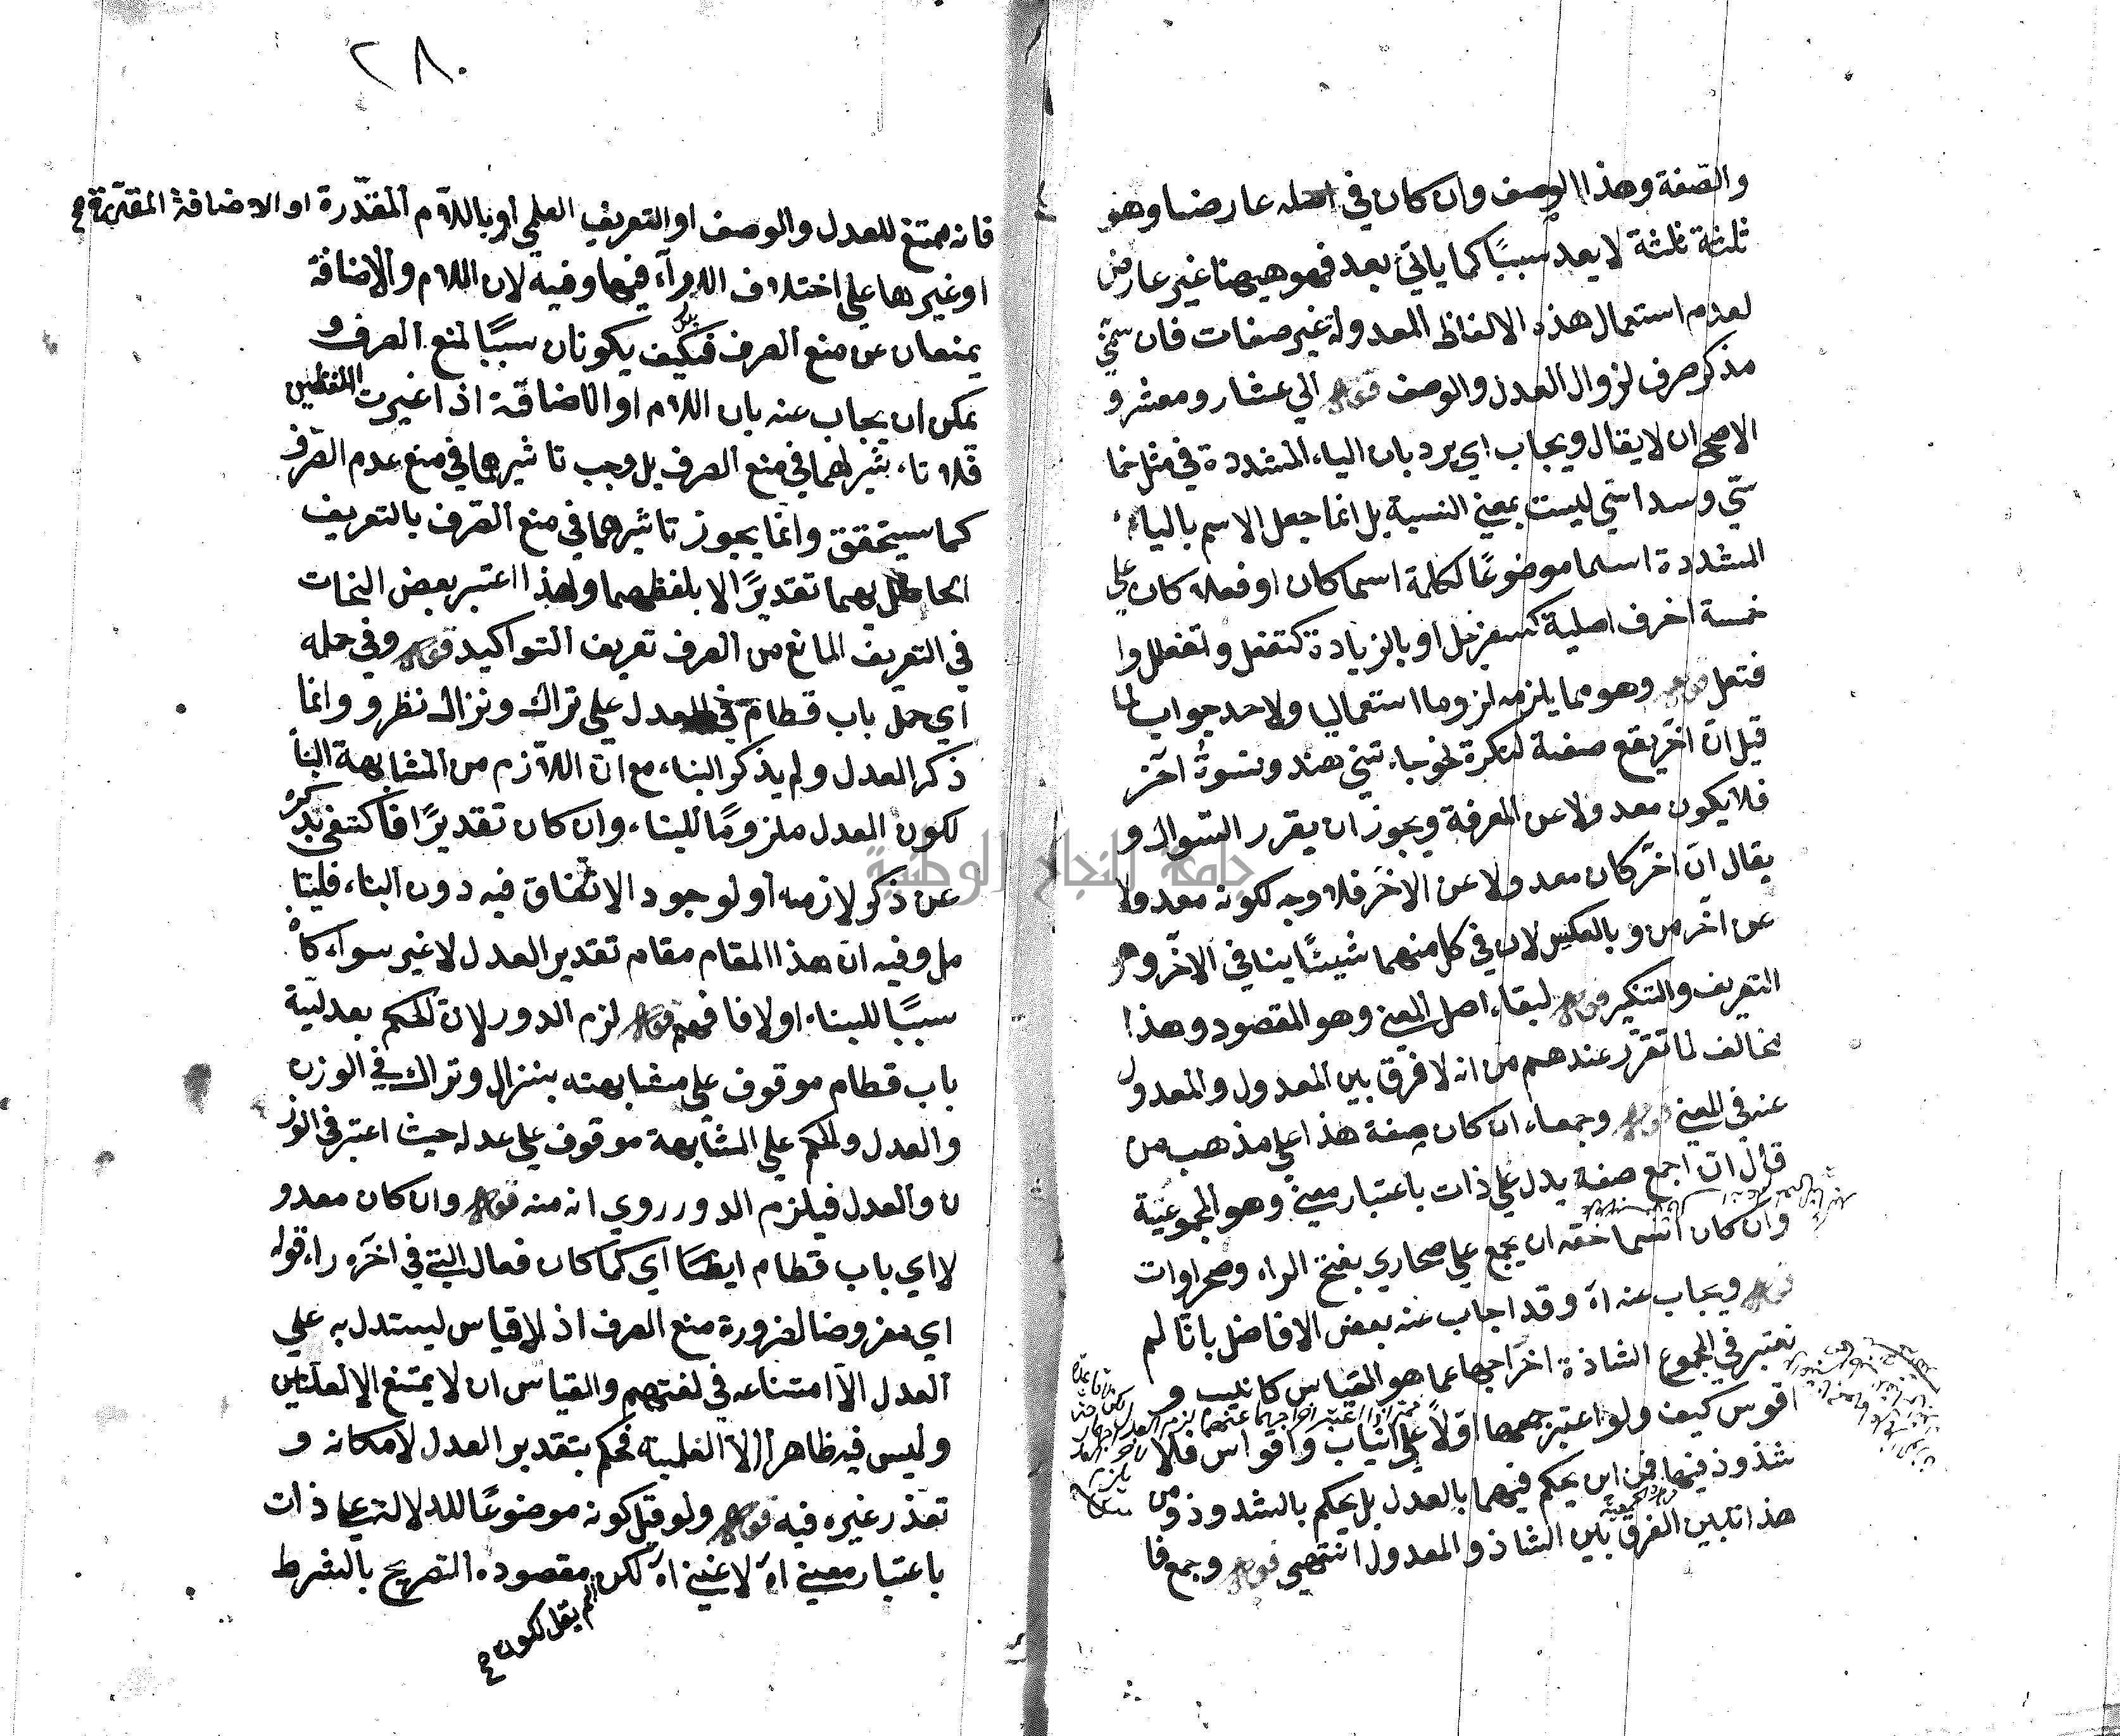 والصفة وهذا الوصف وان كان في اصله عارضا وهو
ثلثة ثلثة لا يعد سببًا كما ياتي بعد فهو هيهنا غير عارض
لعدم استعمال هذه الالفاظ المعدولة غير صفات فان سمّي
مذكر صرف لزوال العدل والوصف قوله الي عشار ومعشر و
الاصح ان لا يقال ويجاب اي يرد بان الياء المشددة في مثل خما
سيّ وسداسي ليست بمعني النسبة بل انما جعل الاسم بالياء
المشددة اسما موضوعًا لكلمة اسما كان او فعلا كان علي
خمسة احرف اصلية كسفرجل او بالزيادة كتفعل وانفعلل وا
فتعل قوله وهو مما يلزمه لزوما استعماليا ولاحد جواب لما
قيل انّ اخر يقع صفة لنكرة نحو جاءتني هند ونسوة اخر
فلا يكون معدولا عن المعرفة ويجوز ان يقرر السوال و
يقال ان اخر كان معدولا عن الاخر فلا وجه لكونه معدولا
عن آخر من وبالعكس لان في كل منهما شيئًا ينافي الآخر وهو
التعريف والتنكير قوله لبقاء اصل المعني وهو المقصود وهذا
يخالف لما تقرّر عندهم من انه لا فرق بين المعدول والمعدول
عنه في المعني قوله وجمعاء ان كان صفة هذا علي مذهب من
قال انّ اجمع صفة يدل علي ذات باعتبار معين وهو المجموعية
وان كان اسما حقه ان يجمع علي صحاري بفتح الراء وصحراوات
قوله ويجاب عنه آه وقد اجاب عنه بعض الافاضل بانّا لم
نعتبر في الجموع الشاذة اخراجها عما هو القياس كانيب و
اقوس كيف ولو اعتبر جمعهما اوّلاً علي انياب واقواس فلا
شذوذ فيهما فمن اين يحكم فيهما بالعدل بل يحكم بالشذوذ ومن
هذا تبين الفرق بين الشاذ والمعدول انتهي قوله وجمع فا
٢٨٠
فانه ممتنع للعدل والوصف او التعريف العلمي او باللام المقدّرة او الاضافة المقدرة
او غيرها علي اختلاف الاراء فيها وفيه لان اللام والاضافة
يمنعان عن منع الصرف فكيف يكونان سببًا لمنع الصرف و
يمكن ان يجاب عنه بان اللام او الاضافة اذا اعتبرت الملفظين
فلا تاءثير لهما في منع الصرف بل وجب تاثيرهما في منع عدم الصرف
كما سيتحقق وانما يجوز تاثيرهما في منع الصرف بالتعريف
الحاصل بهما تقديرًا لا بلفظهما ولهذا اعتبر بعض النحات
في التعريف المانع من الصرف تعريف التواكيد قوله وفي حمله
اي حمل باب قطام في العدل علي تراك ونزال نظر و وانما
ذكر العدل ولم يذكر البناء مع ان اللازم من المشابهة البنا
لكون العدل ملزومًا للبناء وان كان تقديرًا فاكتفي بذكره
عن ذكر لازمه او لوجود الاتفاق فيه دون البناء فليتا
مل وفيه ان هذا المقام مقام تقدير العدل لا غير سواء كا
سببًا للبناء او لا فافهم قوله لزم الدور لان الحكم بعدلية
باب قطام موقوف علي مشابهته بنزال وتراك في الوزن
والعدل والحكم علي المشابهة موقوف علي عدله حيث اعتبر في الوز
ن والعدل فيلزم الدور روي انه منه قوله وان كان معدو
لا اي باب قطام ايضًا اي كما كان فعال التي في اخره راء قوله
اي مفروضا لضرورة منع الصرف اذ لا قياس ليستدل به علي
العدل الا امتناعه في لغتهم والقياس ان لا يمتنع الا لعلتين
وليس فيه ظاهرا الا العلمية فحكم بتقدير العدل لامكانه و
تعذر غيره فيه قوله ولو قيل كونه موضوعًا للدلالة علي ذات
باعتبار معين آه لاغني آه لكن مقصوده التصريح بالشرط
لم يقل لكون
جامعة النجاح الوطنية